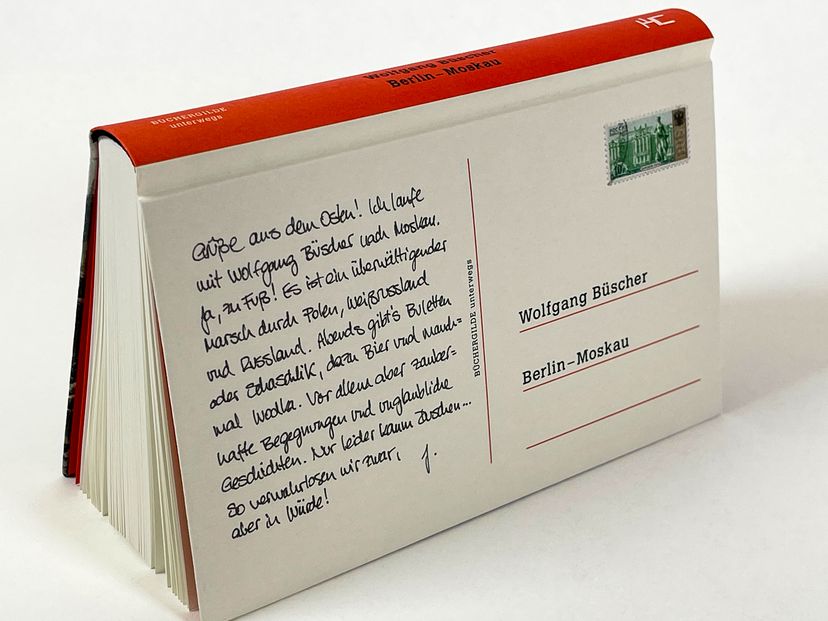 BÜCHERGILDE
unterwegs
Wolfgang Büscher
Berlin–Moskau
Grüße aus dem Osten! Ich laufe
mit Wolfgang Büscher nach Moskau.
Ja, zu Fuß! Es ist ein überwältigender
Marsch durch Polen, Weißrussland
und Russland. Abends gibt's Buletten
oder Schaschlik, dazu Bier und manch=
mal Wodka. Vor allem aber zauber=
hafte Begegnungen und unglaubliche
Geschichten. Nur leider kaum Duschen...
So verwahrlosen wir zwar,
aber in Würde!
J.
BÜCHERGILDE unterwegs
Wolfgang Büscher
Berlin–Moskau